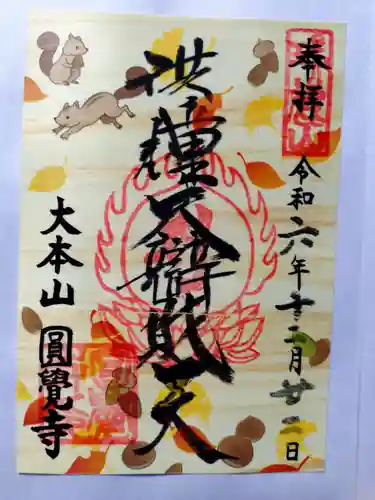 奉拝
令和六年十二月廿二日
洪鐘大辨財天
大本山 圓覺寺